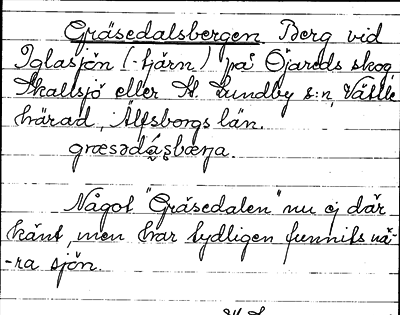 Gräsedalsbergen Berg vid
Iglasjön (-tjärn) på Öjareds skog,
Skallsjö eller St. Lundby s:n, Vättle
härad, Älfsborgs län.
Något "Gräsedalen" nu ej där
känt, men har tydligen funnits nä-
-ra sjön.